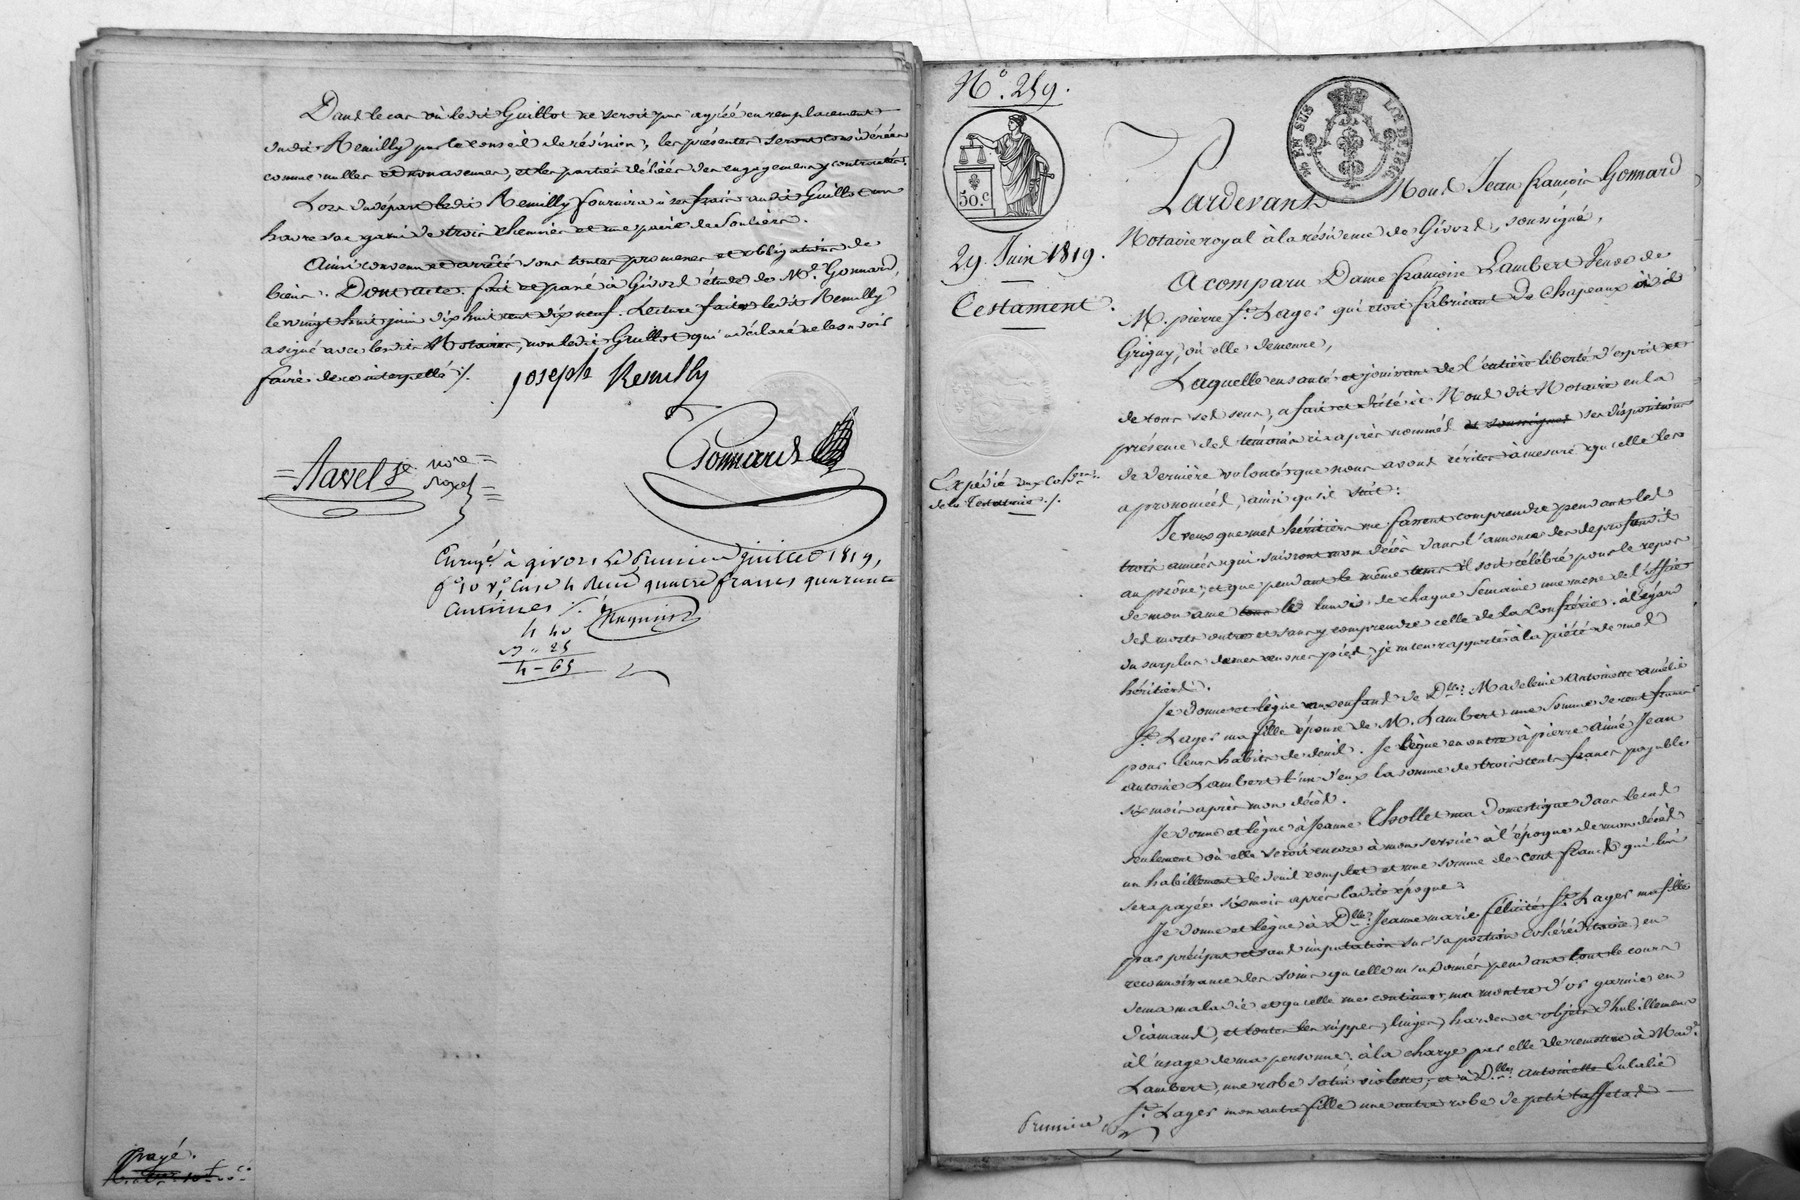 Dans le cas où ledit Guillot ne seroit pas agréé en remplacement
dudit Remilly par le conseil de révision, les présentes seront considérées
comme nulles et non avenues, et les parties déliées des engagemens y contractés.
Lors du départ ledit Remilly fournira à ses frais audit Guillot un
havre sac garni de trois chemises et une paire de souliers.
Ainsi convenu et arrêté sous toutes promesses et obligations de
biens. Dont acte. fait et passé à Givors étude de Me. Gonnard,
le vingt huit juin dix huit cent dix neuf. Lecture faite ledit Remilly
a signé avec lesdits Notaires, non ledit Guillot qui a déclaré ne le savoir
faire de ce interpellé ./.
joseph Remilly
Gonnard
Navel
nore
royal
Enregé. à givors le Premier juillet 1819,
fo. 10 vo. case 4 Reçu quatre francs quarante
centimes ./.
4 40
25
4 - 65
payé.
No. 259.
50.c
EN SUS
LOI DE 1816
29. Juin 1819.
Testament.
Expédié
de la Testatrice ./.
Pardevant Nous Jean françois Gonnard
Notaire royal à la résidence de Givors, soussigné,
A comparu Dame françoise Lambert Veuve de
M. pierre St. Lager qui étoit fabricant de Chapeaux à
Grigny, où elle demeure,
Laquelle en santé et jouissant de l'entière liberté d'esprit et
de tous ses sens, a fait et dicté à Nous dit Notaire en la
présence des témoins ci après nommés et soussignés ses dispositions
de dernière volonté que nous avons écrites à mesure qu'elle les
a prononcées, ainsi qu'il suit:
Je veux que mes héritiers me fassent comprendre pendant les
trois années qui suivront mon décès dans l'annonce des de profundis
au prône; et que pendant le même tems il soit célébré pour le repos
de mon ame tous les lundis de chaque Semaine une messe de l'office
des morts outre et sans y comprendre celle de la Confrérie. à l'égard
du surplus de mes œuvres pies, je m'en rapporte à la piété de mes
héritiers.
Je donne et lègue aux enfans de Dlle. Madeleine Antoinette Amélie
St. Lager ma fille épouse de M. Lambert une Somme de cent francs
pour leurs habits de deuil. Je lègue en outre à pierre Aimé Jean
antoine Lambert l'un d'eux la somme de trois cents francs payable
six mois après mon décès.
Je donne et lègue à Jeanne Thollet ma Domestique dans le cas
seulement où elle seroit encore à mon service à l'époque de mon décès
un habillement de deuil complet et une somme de cent francs qui lui
sera payée six mois après ladite époque.
Je donne et lègue à Dlle. Jeanne marie félicité St. Lager ma fille
par préciput et sans imputation sur sa portion cohéréditaire, en
reconnoissance des soins qu'elle m'a donnés pendant tout le cours
de ma maladie et qu'elle me continue, ma montre d'or garnie en
diamans, et toutes les nippes, linges, hardes et objets d'habillemens
à l'usage de ma personne. à la charge par elle de remettre à Made.
Lambert, une robe satin violette; et à Dlle. Antoinette Eulalie
St. Lager mon autre fille une autre robe de petit taffetas
Premiere